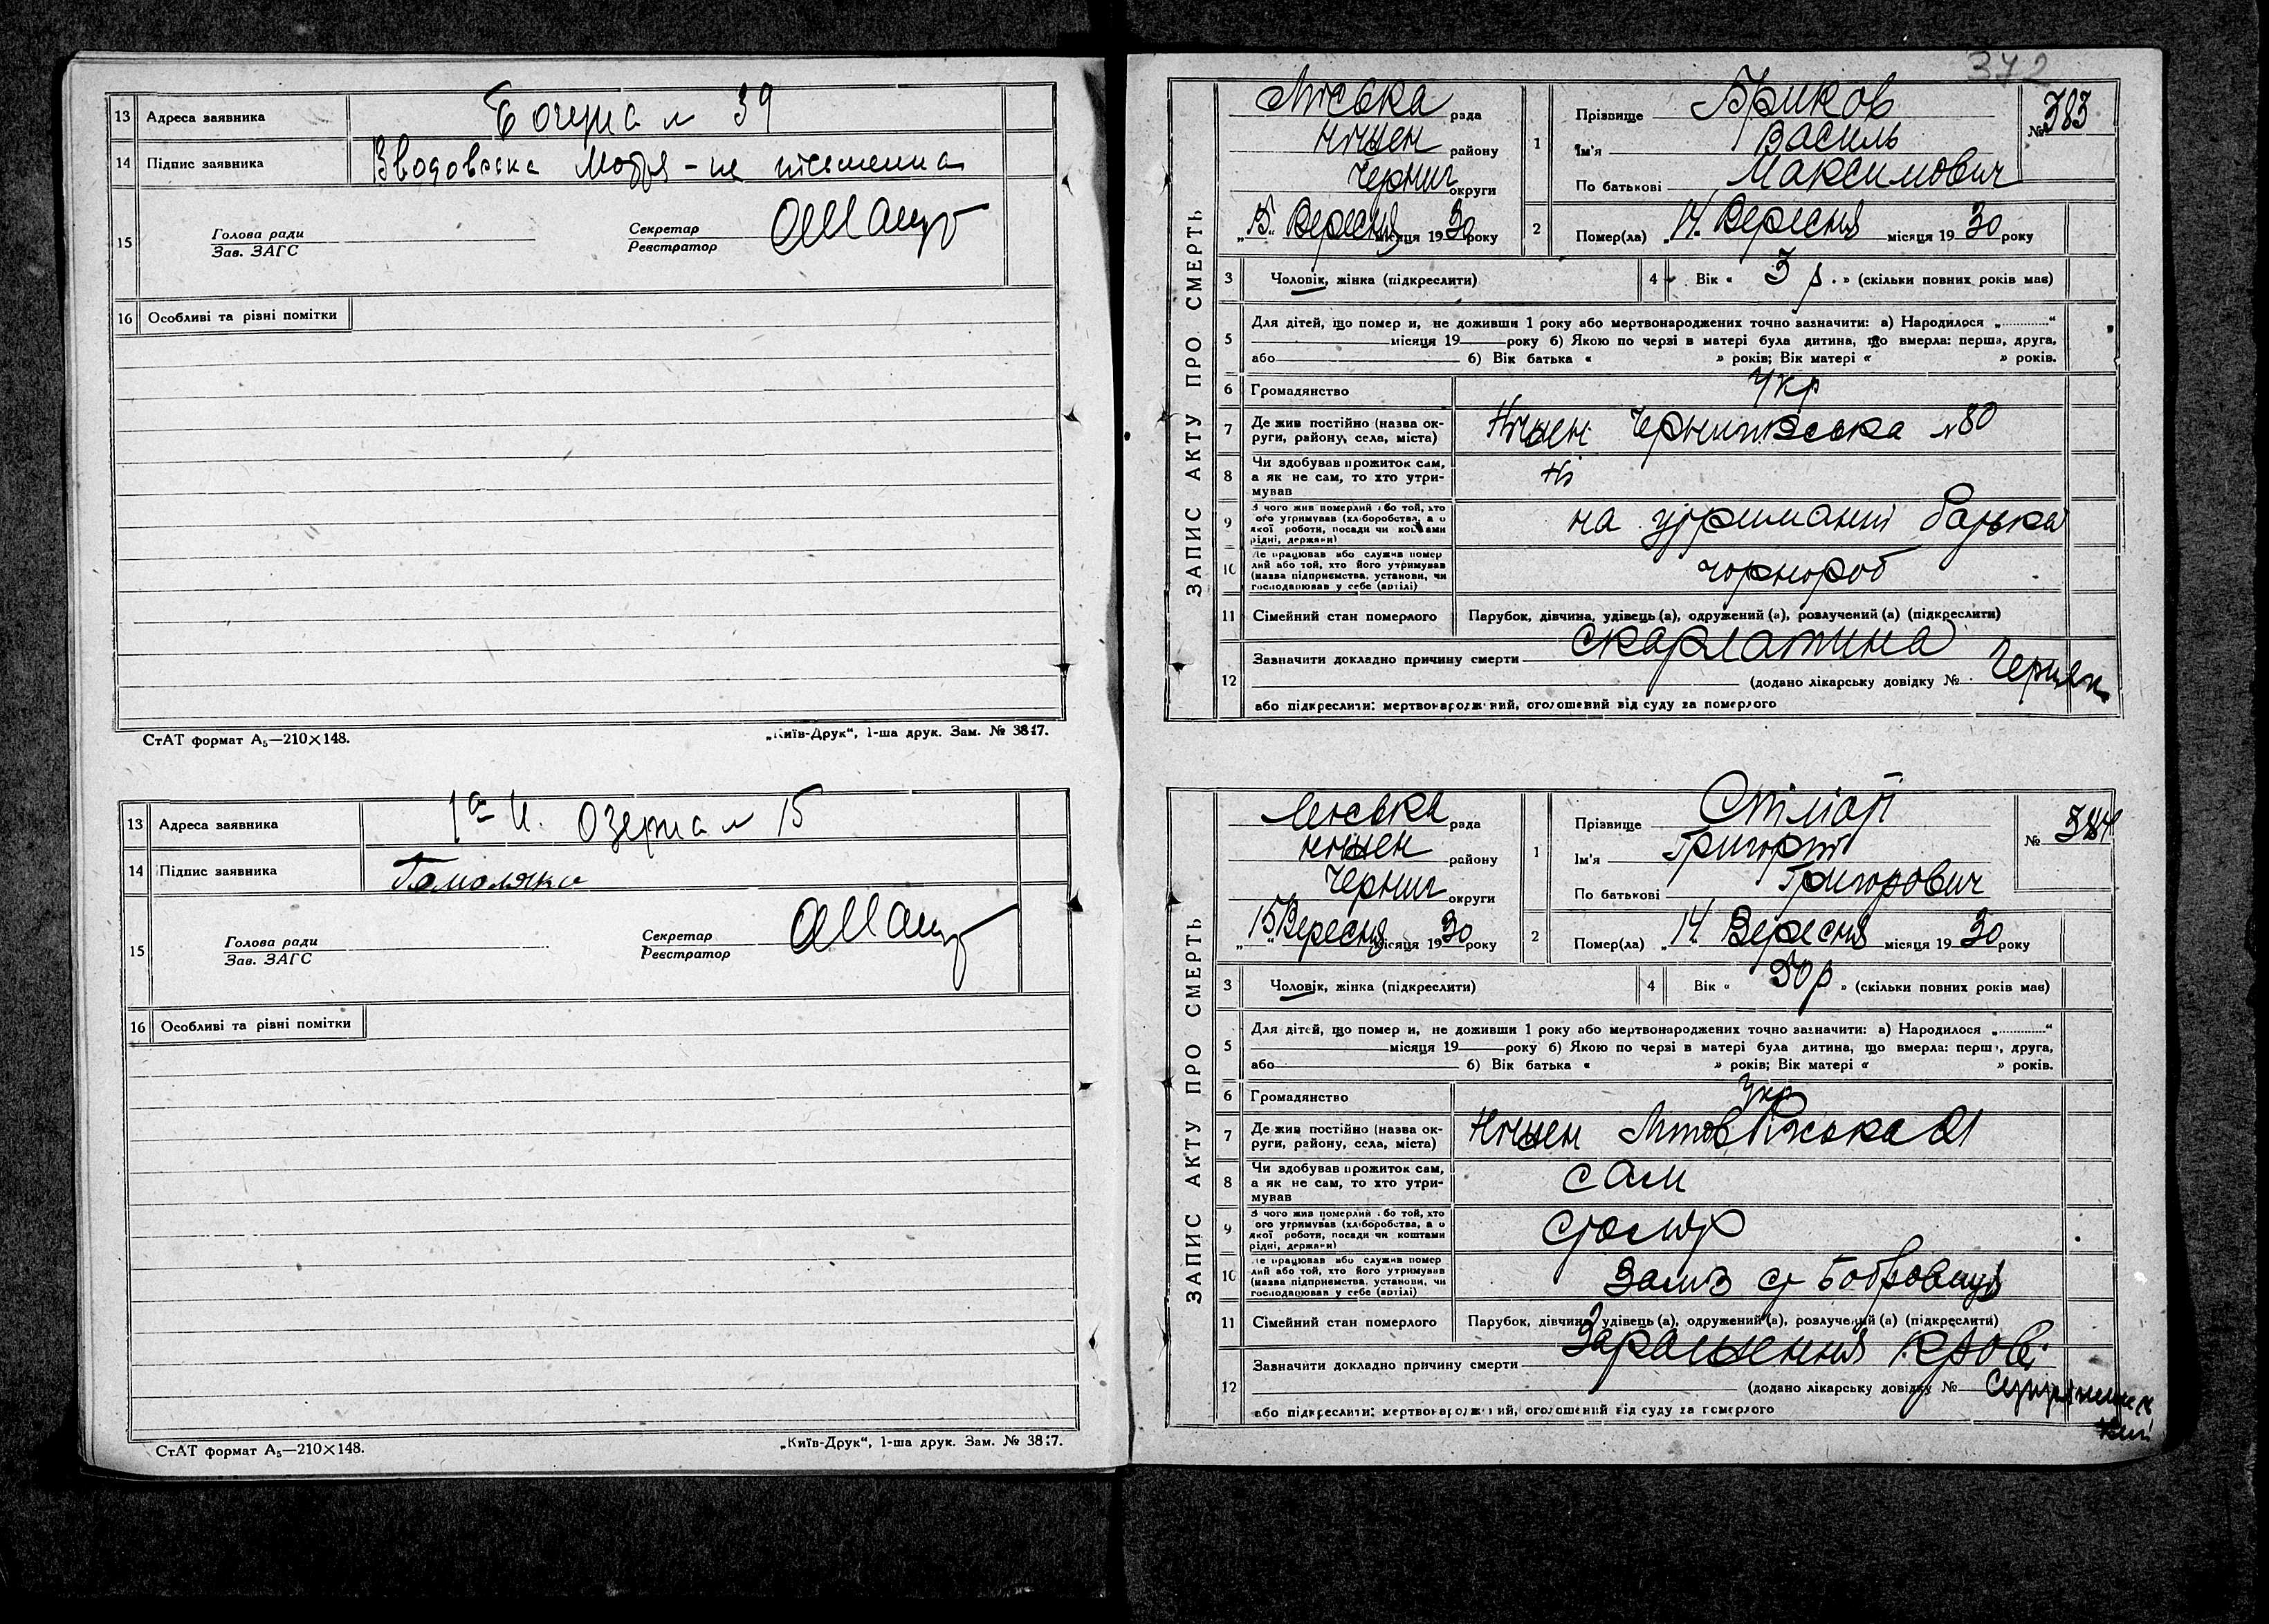 13 Адреса заявника Богуна № 39
14 Підпис заявника Мотря - не письменна
15 Голова ради
Зав. ЗАГС
Секретар
Реєстратор
16 Особливі та різні помітки
СтАТ формат А₅—210×148. „Київ-Друк“, 1-ша друк. Зам. № 3817.
13 Адреса заявника № 15
14 Підпис заявника Гомоляко
15 Голова ради
Зав. ЗАГС
Секретар
Реєстратор
16 Особливі та різні помітки
СтАТ формат А₅—210×148. „Київ-Друк“, 1-ша друк. Зам. № 3817.
372
ЗАПИС АКТУ ПРО СМЕРТЬ
Міська рада
Ніжен району
Черниг округи
„15“ Вересня місяця 1930 року
1 Прізвище Бриков
Ім'я Василь
По батькові Максимович
№ 383
2 Помер(ла) „14 Вересня місяця 1930 року
3 Чоловік, жінка (підкреслити)
4 Вік « 3 р. » (скільки повних років має)
5 Для дітей, що помер и, не доживши 1 року або мертвонароджених точно зазначити: а) Народилося „............“
місяця 19 року б) Якою по черзі в матері була дитина, що вмерла: перша, друга,
або б) Вік батька « » років; Вік матері « » років.
6 Громадянство Укр
7 Де жив постійно (назва ок-
руги, району, села, міста) Ніжен Чернигівська №80
8 Чи здобував прожиток сам,
а як не сам, то хто утри-
мував Ні
9 З чого жив померлий або той, хто
його утримував (хліборобства, з
якої роботи, посади чи коштами
рідні, держави) на утриманні батька
10 Де працював або служив помер
лий або той, хто його утримував
(назва підприємства, установи, чи
господарював у себе (артілі) чорнороб
11 Сімейний стан померлого Парубок, дівчина, удівець (а), одружений (а), розлучений (а) (підкреслити)
12 Зазначити докладно причину смерти скарлатина
(додано лікарську довідку № Черняк
або підкреслити: мертвонароджений, оголошений від суду за померлого
ЗАПИС АКТУ ПРО СМЕРТЬ
Міська рада
Ніжен району
Черниг округи
„15“ Вересня місяця 1930 року
1 Прізвище
Ім'я Григорій
По батькові Григорович
№ 384
2 Помер(ла) „14 Вересня місяця 1930 року
3 Чоловік, жінка (підкреслити)
4 Вік « 50 р » (скільки повних років має)
5 Для дітей, що помер и, не доживши 1 року або мертвонароджених точно зазначити: а) Народилося „............“
місяця 19 року б) Якою по черзі в матері була дитина, що вмерла: перша, друга,
або б) Вік батька « » років; Вік матері « » років.
6 Громадянство Укр
7 Де жив постійно (назва ок-
руги, району, села, міста) Ніжен
8 Чи здобував прожиток сам,
а як не сам, то хто утри-
мував сам
9 З чого жив померлий або той, хто
його утримував (хліборобства, з
якої роботи, посади чи коштами
рідні, держави) столяр
10 Де працював або служив помер
лий або той, хто його утримував
(назва підприємства, установи, чи
господарював у себе (артілі) Заліз ст Бобровиця
11 Сімейний стан померлого Парубок, дівчина, удівець (а), одружений (а), розлучений (а) (підкреслити)
12 Зазначити докладно причину смерти Зараження крові
(додано лікарську довідку №
або підкреслити: мертвонароджений, оголошений від суду за померлого